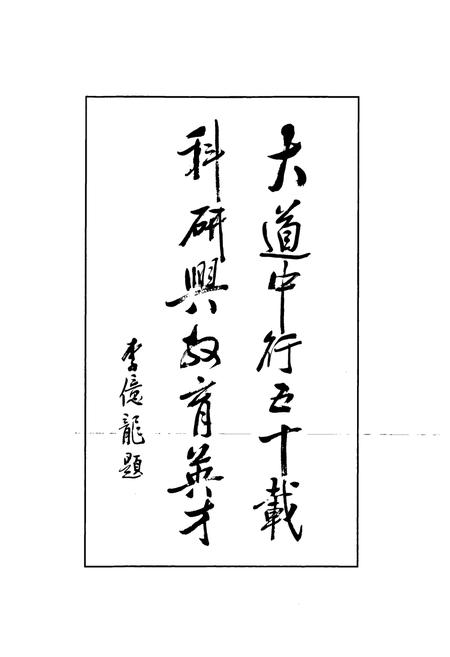 大道中行五十載
科研興教育英才
李億龍題